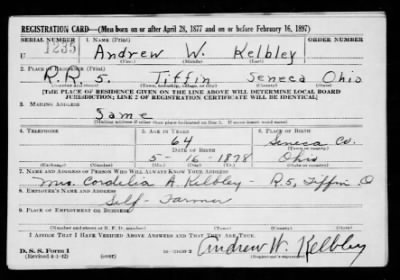 REGISTRATION CARD—(Men born on or after April 28, 1877 and on or before February 16, 1897)
SERIAL NUMBER 1. NAME (Print) ORDER NUMBER
U 1235 Andrew W. Kelbley
(First) (Middle) (Last)
2. PLACE OF RESIDENCE (Print)
R.R. 5. Tiffin Seneca Ohio
(Number and street) (Town, township, village, or city) (County) (State)
[THE PLACE OF RESIDENCE GIVEN ON THE LINE ABOVE WILL DETERMINE LOCAL BOARD
JURISDICTION; LINE 2 OF REGISTRATION CERTIFICATE WILL BE IDENTICAL]
3. MAILING ADDRESS
Same
[Mailing address if other than place indicated on line 2. If same insert word same]
4. TELEPHONE 5. AGE IN YEARS 6. PLACE OF BIRTH
64 Seneca Co.
DATE OF BIRTH (Town or county)
5-16-1878 Ohio
(Exchange) (Number) (Mo.) (Day) (Yr.) (State or country)
7. NAME AND ADDRESS OF PERSON WHO WILL ALWAYS KNOW YOUR ADDRESS
Mrs. Cordelia A. Kelbley - R.5, Tiffin, O
8. EMPLOYER'S NAME AND ADDRESS
Self - Farmer
9. PLACE OF EMPLOYMENT OR BUSINESS
(Number and street or R. F. D. number) (Town) (County) (State)
I AFFIRM THAT I HAVE VERIFIED ABOVE ANSWERS AND THAT THEY ARE TRUE.
D. S. S. Form 1
(Revised 4-1-42) (over) Andrew W. Kelbley